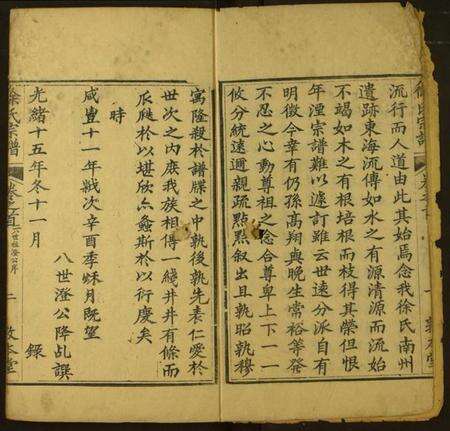 流行而人道由此其始焉念我徐氏南州
遺跡東海流傳如水之有源清源而流始
不竭如木之有根培根而枝得其榮但恨
年湮宗譜難以遽訂雖云世遠分派自有
明徵今幸有仍孫高翔與晚生常裕等發
不忍之心動尊祖之念合尊卑上下一一
攸分統遠邇親疏點點叙出且孰昭孰穆
寓隆殺於譜牒之中孰後孰先表仁愛於
世次之内庶我族相傳一綫井井有條而
瓜瓞於以堪欣螽斯於以衍慶矣
時
咸豐十一年歲次辛酉季秋月既望
八世澄公降乩譔
光緒十五年冬十一月
錄
徐氏宗譜
卷之首
八世祖澄公序
二
敦本堂